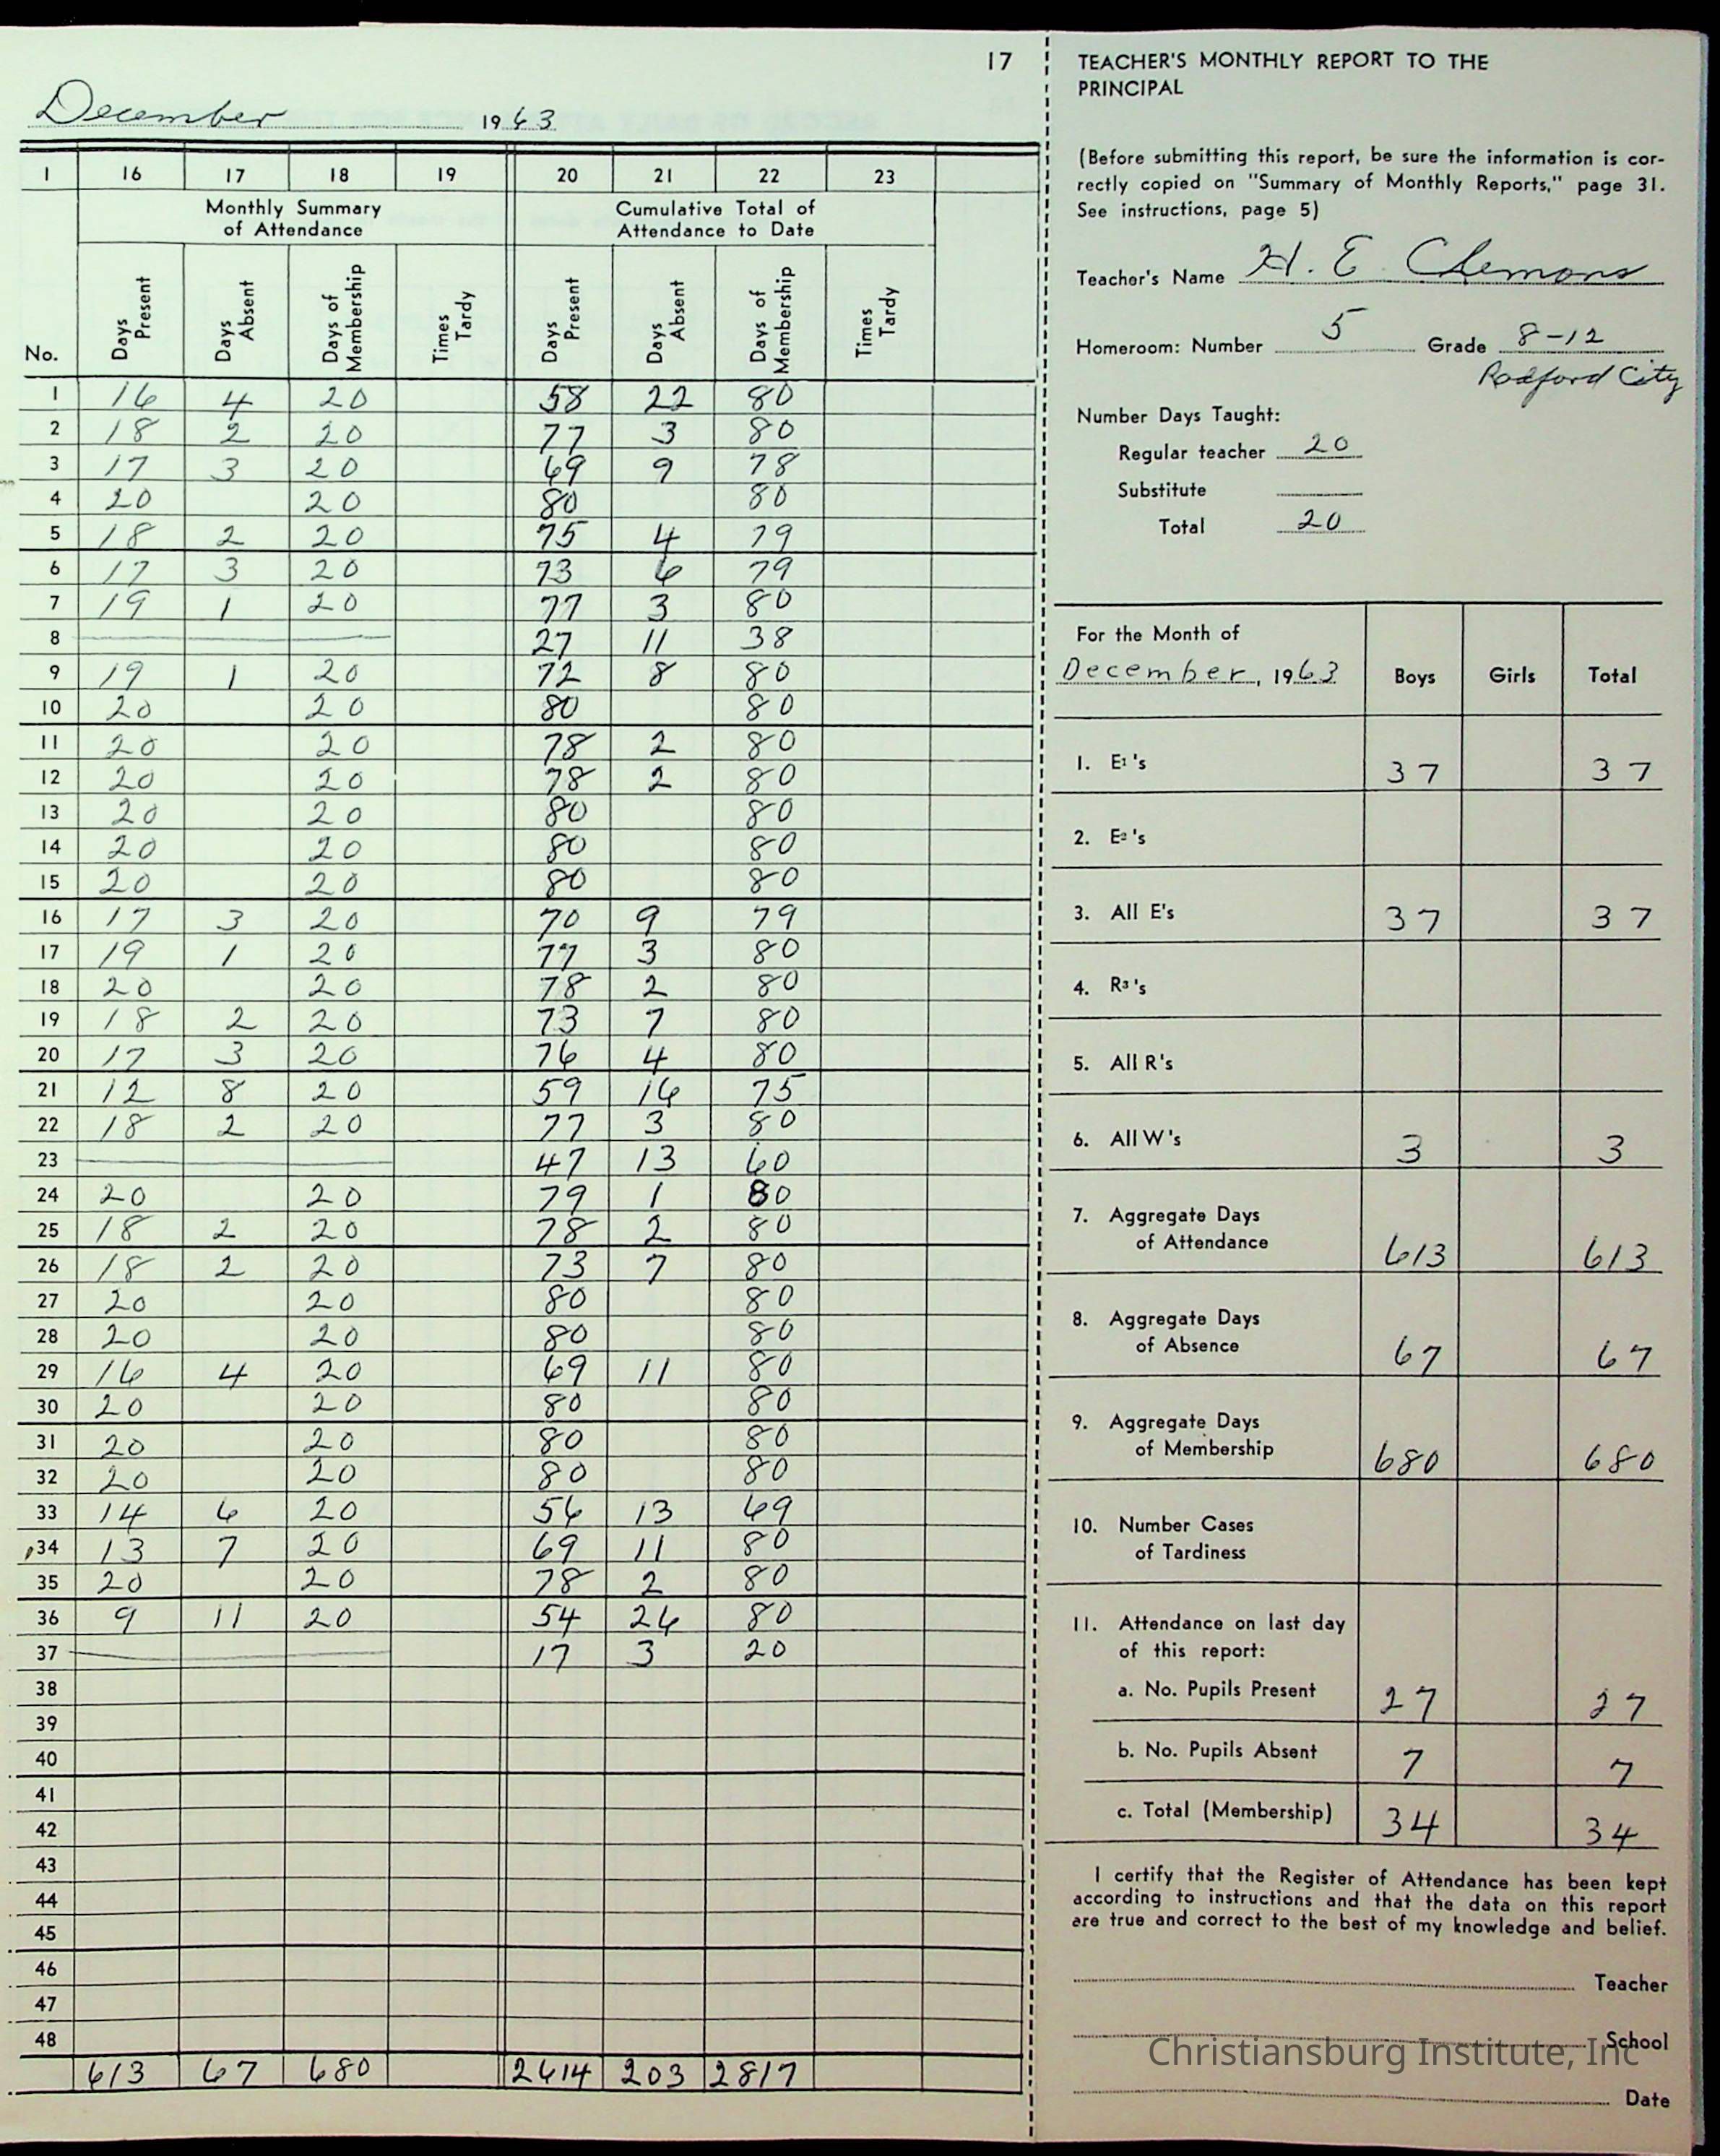 17
December 1963
1 16 17 18 19 20 21 22 23
Monthly Summary of Attendance Cumulative Total of Attendance to Date
No. Days Present Days Absent Days of Membership Times Tardy Days Present Days Absent Days of Membership Times Tardy
1 16 4 20 58 22 80
2 18 2 20 77 3 80
3 17 3 20 69 9 78
4 20 20 80 80
5 18 2 20 75 4 79
6 17 3 20 73 6 79
7 19 1 20 77 3 80
8 27 11 38
9 19 1 20 72 8 80
10 20 20 80 80
11 20 20 78 2 80
12 20 20 78 2 80
13 20 20 80 80
14 20 20 80 80
15 20 20 80 80
16 17 3 20 70 9 79
17 19 1 20 77 3 80
18 20 20 78 2 80
19 18 2 20 73 7 80
20 17 3 20 76 4 80
21 12 8 20 59 16 75
22 18 2 20 77 3 80
23 47 13 60
24 20 20 79 1 80
25 18 2 20 78 2 80
26 18 2 20 73 7 80
27 20 20 80 80
28 20 20 80 80
29 16 4 20 69 11 80
30 20 20 80 80
31 20 20 80 80
32 20 20 80 80
33 14 6 20 56 13 69
34 13 7 20 69 11 80
35 20 20 78 2 80
36 9 11 20 54 26 80
37 17 3 20
38
39
40
41
42
43
44
45
46
47
48
613 67 680 2614 203 2817
TEACHER'S MONTHLY REPORT TO THE
PRINCIPAL
(Before submitting this report, be sure the information is cor-
rectly copied on "Summary of Monthly Reports," page 31.
See instructions, page 5)
Teacher's Name H. E. Clemons
Homeroom: Number 5 Grade 8-12
Radford City
Number Days Taught:
Regular teacher 20
Substitute
Total 20
For the Month of
December, 1963 Boys Girls Total
1. E1's 37 37
2. E2's
3. All E's 37 37
4. R3's
5. All R's
6. All W's 3 3
7. Aggregate Days
of Attendance 613 613
8. Aggregate Days
of Absence 67 67
9. Aggregate Days
of Membership 680 680
10. Number Cases
of Tardiness
11. Attendance on last day
of this report:
a. No. Pupils Present 27 27
b. No. Pupils Absent 7 7
c. Total (Membership) 34 34
I certify that the Register of Attendance has been kept
according to instructions and that the data on this report
are true and correct to the best of my knowledge and belief.
Teacher
School
Christiansburg Institute, Inc
Date